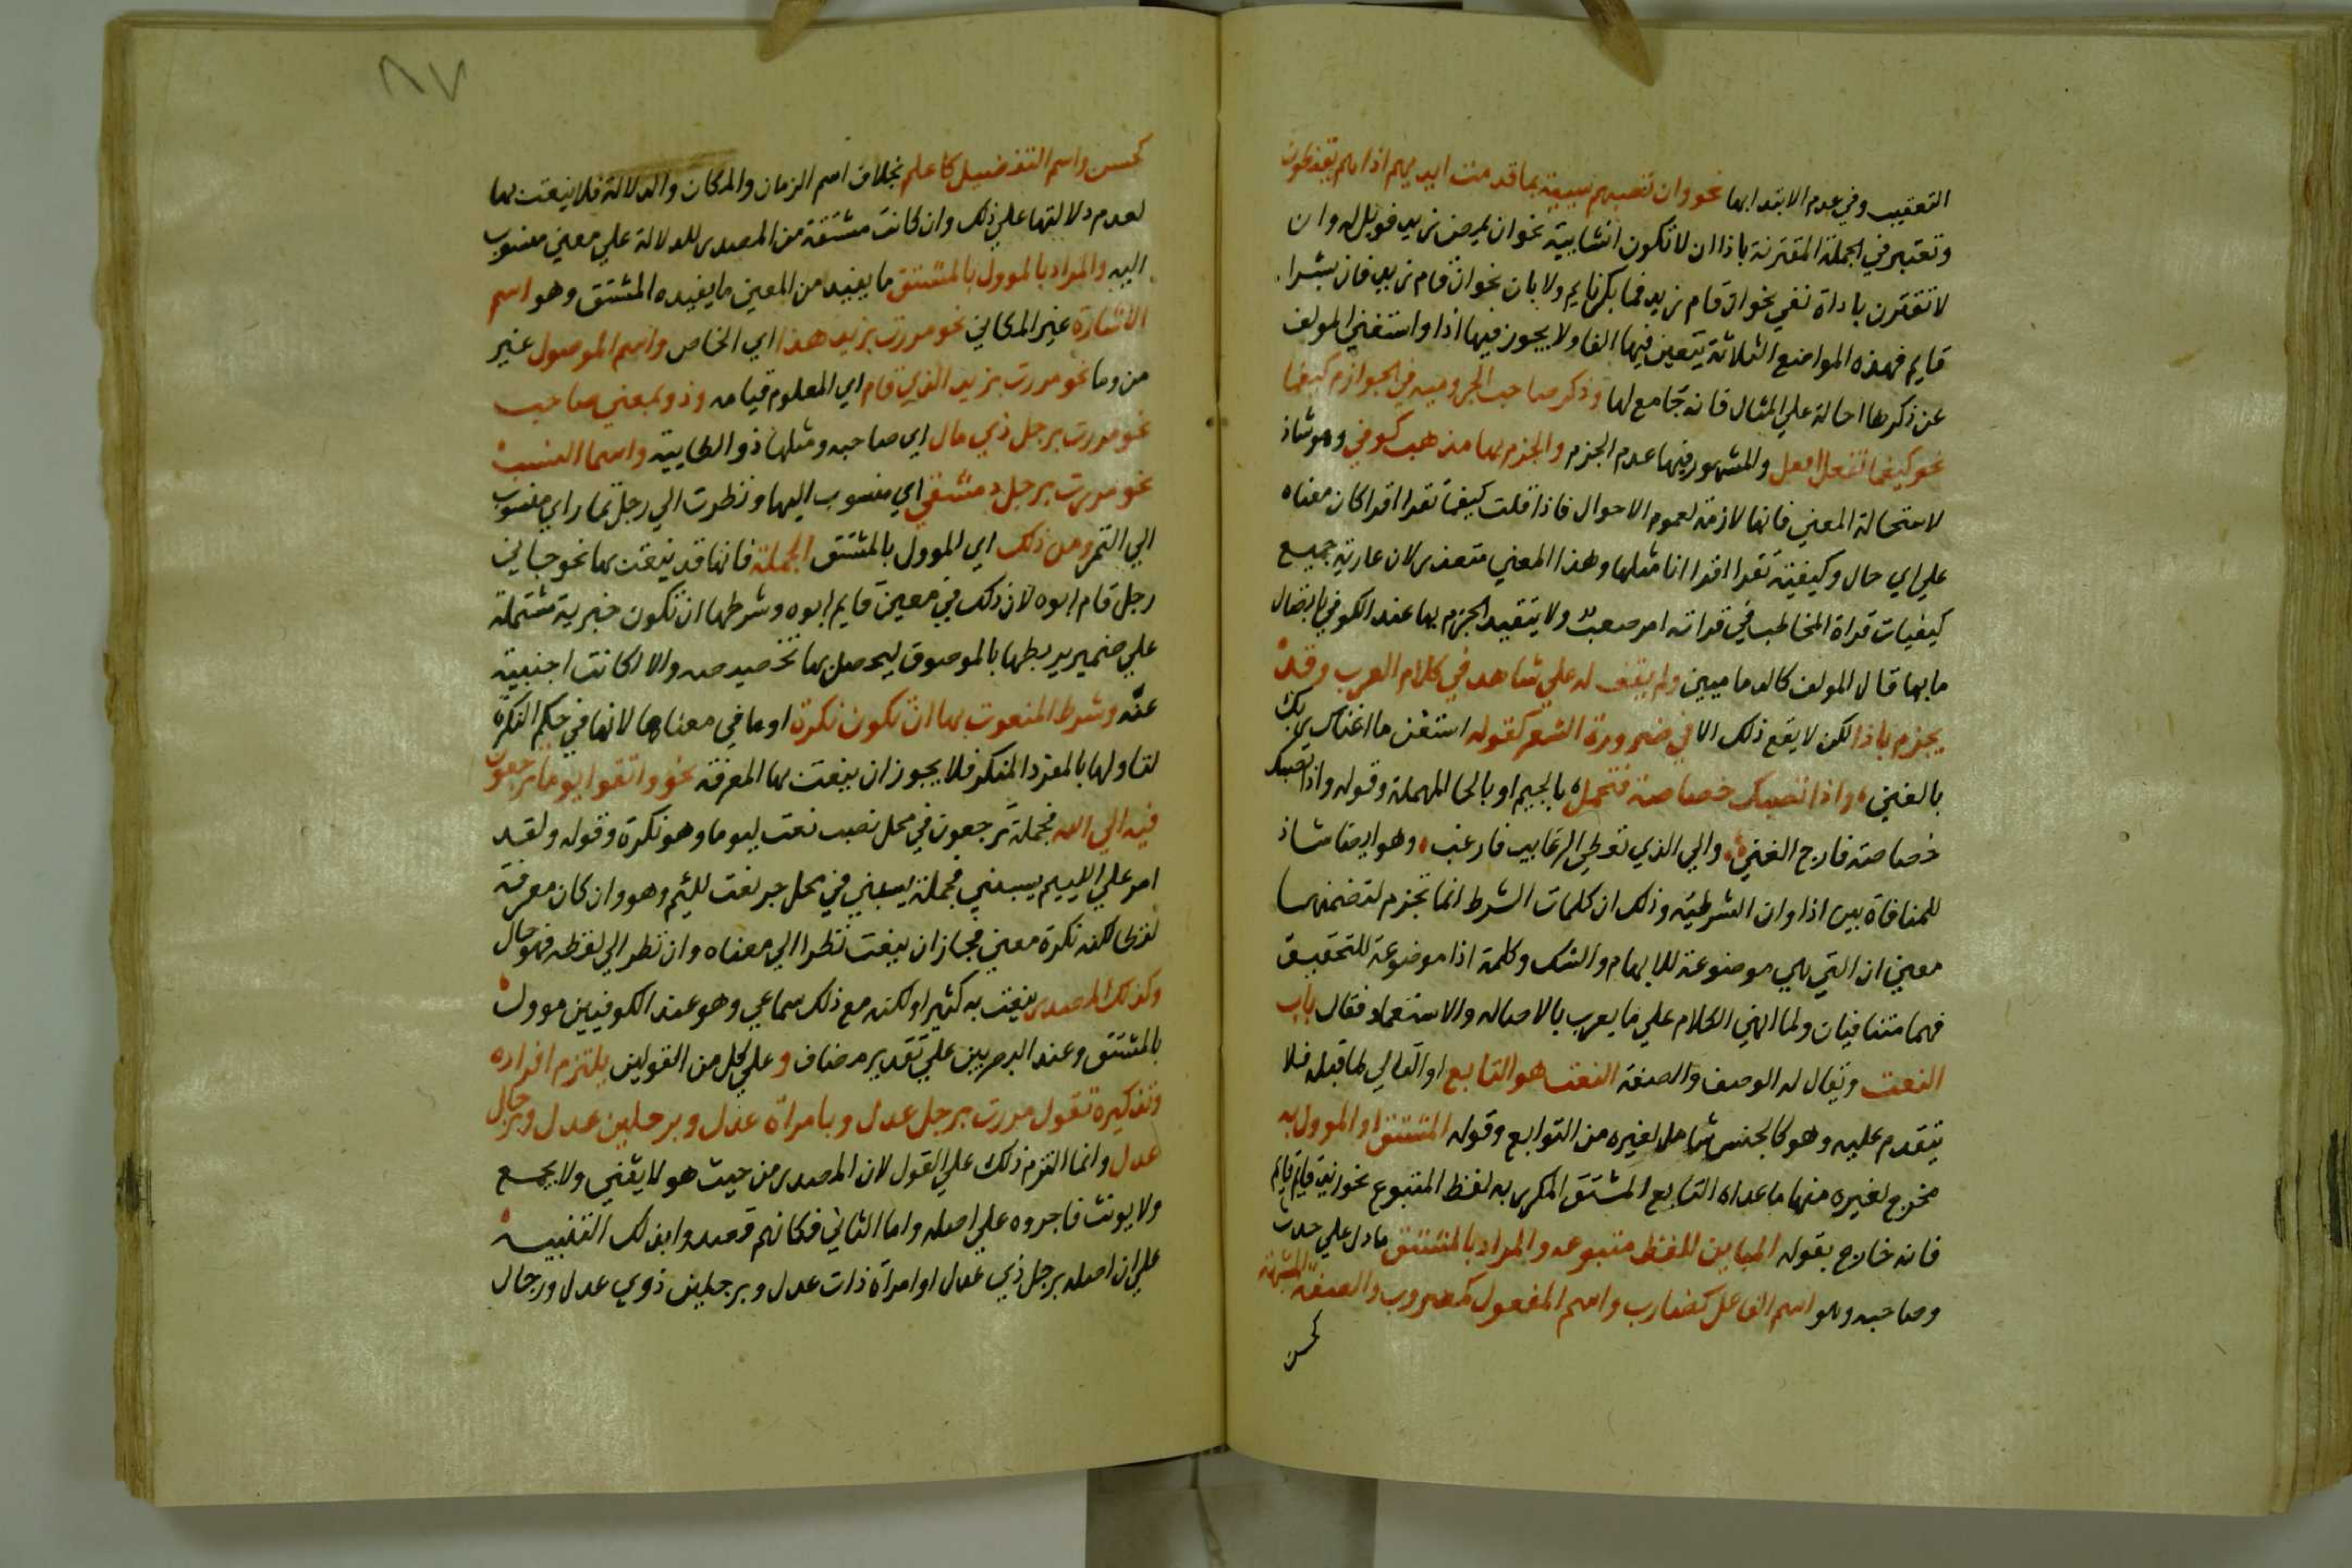 التعقيب وفي عدم الابتدا بها نحو وان تصبهم سيية بما قدمت ايديهم اذا هم يقنطون
وتعتبر في الجملة المقترنة باذا ان لا تكون انشاىية نحو ان يمرض زيد فويل له وان
لا تقترن باداة نفي نحو ان قام زيد فما بكر قايم ولا بان نحو ان قام زيد فان بشرا
قايم فهذه المواضع الثلاثة يتعين فيها الفا ولا يجوز فيها اذا واستغني المولف
عن ذكرها احالة علي المثال فانه جامع لها وذكر صاحب الجروميه في الجوازم كيفما
نحو كيفما تفعل افعل والمشهور فيها عدم الجزم والجزم بها مذهب كوفي وهو شاذ
لاستحالة المعني فانها لازمة لعموم الاحوال فاذا قلت كيفما تقرا اقرا كان معناه
علي اي حال وكيفية تقرا اقرا انا مثلها وهذا المعني متعذر لان عارية جميع
كيفيات قراة المخاطب في قراته امر صعب ولا يتقيد الجزم بها عند الكوفي باتصال
ما بها قال المولف كالدماميين ولم يقف له علي شاهد في كلام العرب وقد
يجزم باذا لكن لا يقع ذلك الا في ضرورة الشعر كقوله استغن ما اغناك ربك
بالغني واذا تصبك خصاصة فتجمل بالجيم او بالحا المهملة وقوله واذا تصبك
خصاصة فارج الغني والي الذي تعطي الرغايب فارغب وهو ايضا شاذ
للمنافاة بين اذا وان الشرطية وذلك ان كلمات الشرط انما تجزم لتضمنها
معني ان التي هي موضوعة للابهام والشك وكلمة اذا موضوعة للتحقيق
فهما متنافيان ولما انهي الكلام علي ما يعرب بالاصاله والاستقلال فقال باب
النعت ويقال له الوصف والصفة النعت هو التابع او التالي لما قبله فلا
يتقدم عليه وهو كالجنس شامل لغيره من التوابع وقوله المشتق او الموول به
مخرج لغيره منها ما عداه التابع المشتق المكرر به لفظ المتبوع نحو زيد قايم قايم
فانه خارج بقوله المباين للفظ متبوعه والمراد بالمشتق ما دل علي حدث
وصاحبه وهو اسم الفاعل كضارب واسم المفعول كمضروب والصفة المشبهة
كحسن
٨٧
كحسن واسم التفضيل كاعلم بخلاف اسم الزمان والمكان والدلالة فلا ينعت بها
لعدم دلالتها علي ذلك وان كانت مشتقة من المصدر للدلالة علي معني منسوب
اليه والمراد بالموول بالمشتق ما يفيد من المعني ما يفيده المشتق وهو اسم
الاشارة غير المكاني نحو مررت بزيد هذا اي الخاص واسم الموصول غير
من وما نحو مررت بزيد الذي قام اي المعلوم قيامه وذو بمعني صاحب
نحو مررت برجل ذي مال اي صاحبه ومثلها ذو الطاىية واسما النسب
نحو مررت برجل دمشقي اي منسوب اليها ونظرت الي رجل تمار اي منسوب
الي التمر ومن ذلك اي الموول بالمشتق الجملة فانها قد ينعت بها نحو جاني
رجل قام ابوه لان ذلك في معني قايم ابوه وشرطها ان تكون خبرية مشتملة
علي ضمير يربطها بالموصوف ليحصل بها تخصيصه والا لكانت اجنبية
عنه وشرط المنعوت بها ان تكون نكرة او ما في معناها لانها في حكم النكرة
لتاولها بالمفرد المنكر فلا يجوز ان ينعت بها المعرفة نحو واتقوا يوما ترجعون
فيه الي الله فجملة ترجعون في محل نصب نعت ليوما وهو نكرة وقوله ولقد
امر علي الليىم يسبني فجملة يسبني في محل جر نعت لليىم وهو وان كان معرفة
لفظا لكنه نكرة معني فجاز ان ينعت نظرا الي معناه وان نظر الي لفظه فهو حال
وكذلك المصدر ينعت به كثيرا ولكنه مع ذلك سماعي وهو عند الكوفيين موول
بالمشتق وعند البصريين علي تقدير مضاف وعلي كل من القولين يلتزم افراده
وتذكيره تقول مررت برجل عدل وبامراة عدل وبرجلين عدل وبرجال
عدل وانما التزم ذلك علي القول لان المصدر من حيث هو لا يثني ولا يجمع
ولا يونث فاجروه علي اصله واما الثاني فكانهم قصدوا بذلك التنبيه
علي ان اصله برجل ذي عدل او امراة ذات عدل وبرجلين ذوي عدل ورجال